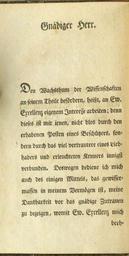 Gnädiger Herr.
Den Wachsthum der Wissenschaften
an seinem Theile befördern, heißt, an Ew.
Excellenz eigenem Interesse arbeiten; denn
dieses ist mit jenen, nicht blos durch den
erhabenen Posten eines Beschützers, son-
dern durch das viel vertrautere eines Lieb-
habers und erleuchteten Kenners innigst
verbunden. Deswegen bediene ich mich
auch des einigen Mittels, das gewisser-
maßen in meinem Vermögen ist, meine
Dankbarkeit vor das gnädige Zutrauen
zu bezeigen, womit Ew. Excellenz mich
beeh-